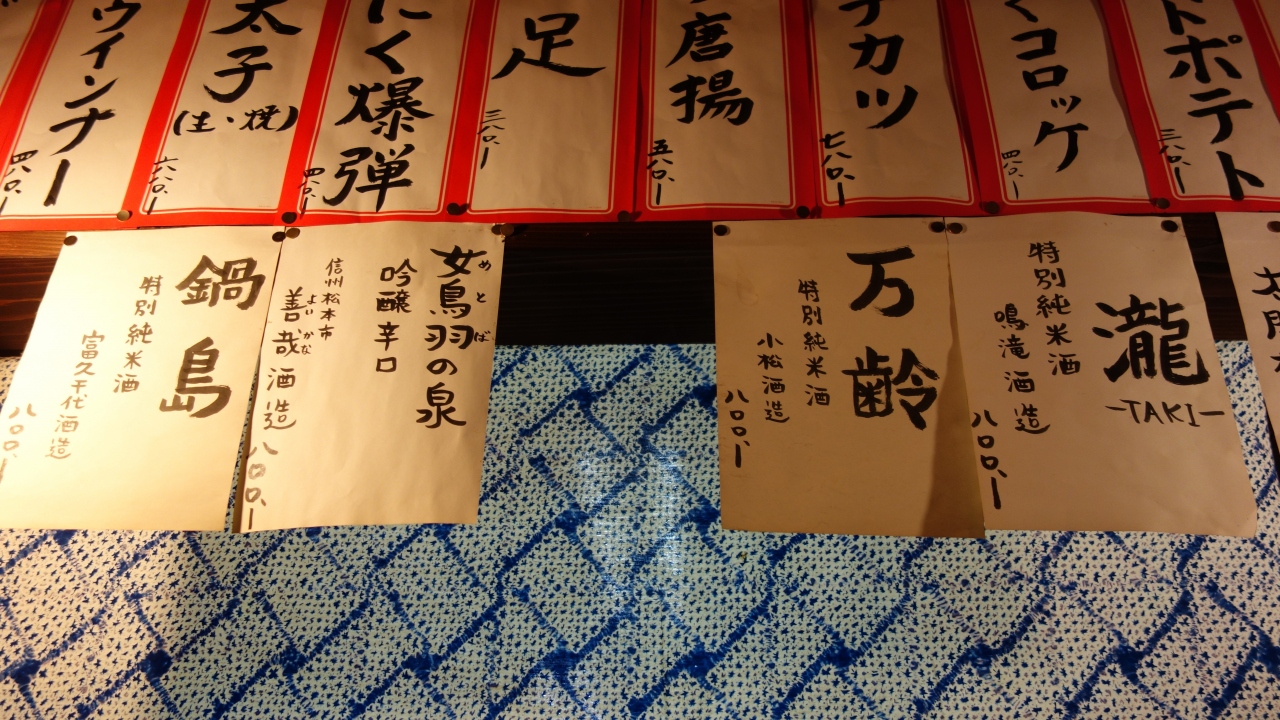 トポテト
三八〇、ー
くコロッケ
四八〇、ー
チカツ
七八〇、ー
唐揚
五八〇、ー
足
三八〇、ー
にく爆弾
四八〇、ー
太子
(生・焼)
六八〇、ー
ウインナー
四八〇、ー
瀧
-TAKI-
特別純米酒
鳴滝酒造
八〇〇、ー
万齢
特別純米酒
小松酒造
八〇〇、ー
女鳥羽の泉
めとば
吟醸辛口
信州松本市
善哉酒造
よいかな
八〇〇、ー
鍋島
特別純米酒
富久千代酒造
八〇〇、ー